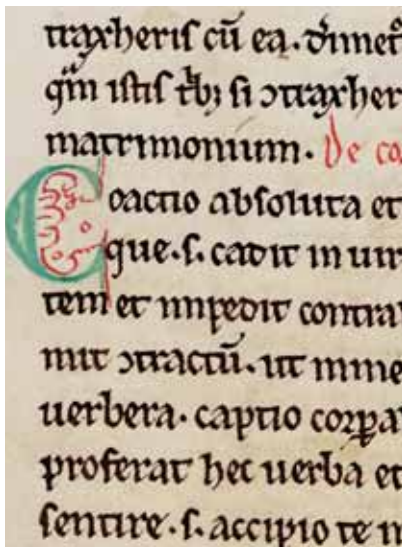 traxheris cū ea. dīmet
qm̄ istis trib; si ɔtraxher
matrimonium. De co
Coactio absoluta et
que .s. cadit in uir
tem et impedit contra
mit ɔtractū. ut mine
uerbera. captio corpa
proferat hec uerba et
sentire .s. accipio te